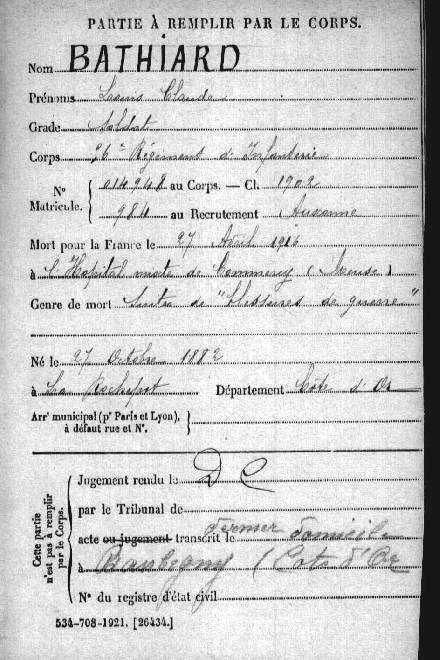 PARTIE À REMPLIR PAR LE CORPS.
Nom BATHIARD
Prénoms Louis Claude
Grade Soldat
Corps 26e Régiment d'Infanterie
N° Matricule. 014948 au Corps. — Cl. 1902
984 au Recrutement Auxonne
Mort pour la France le 27 Avril 1916
à l'Hopital mixte de Commercy (Meuse)
Genre de mort Suites de "blessures de guerre"
Né le 27 Octobre 1882
à La Rochepot Département Cote d'Or
Arrt municipal (pr Paris et Lyon),
à défaut rue et N°.
Cette partie n'est pas à remplir par le Corps.
Jugement rendu le D C
par le Tribunal de
acte ou jugement transcrit le dernier domicile
à Baubigny (Cote d'Or
N° du registre d'état civil
534-708-1921. [26434.]